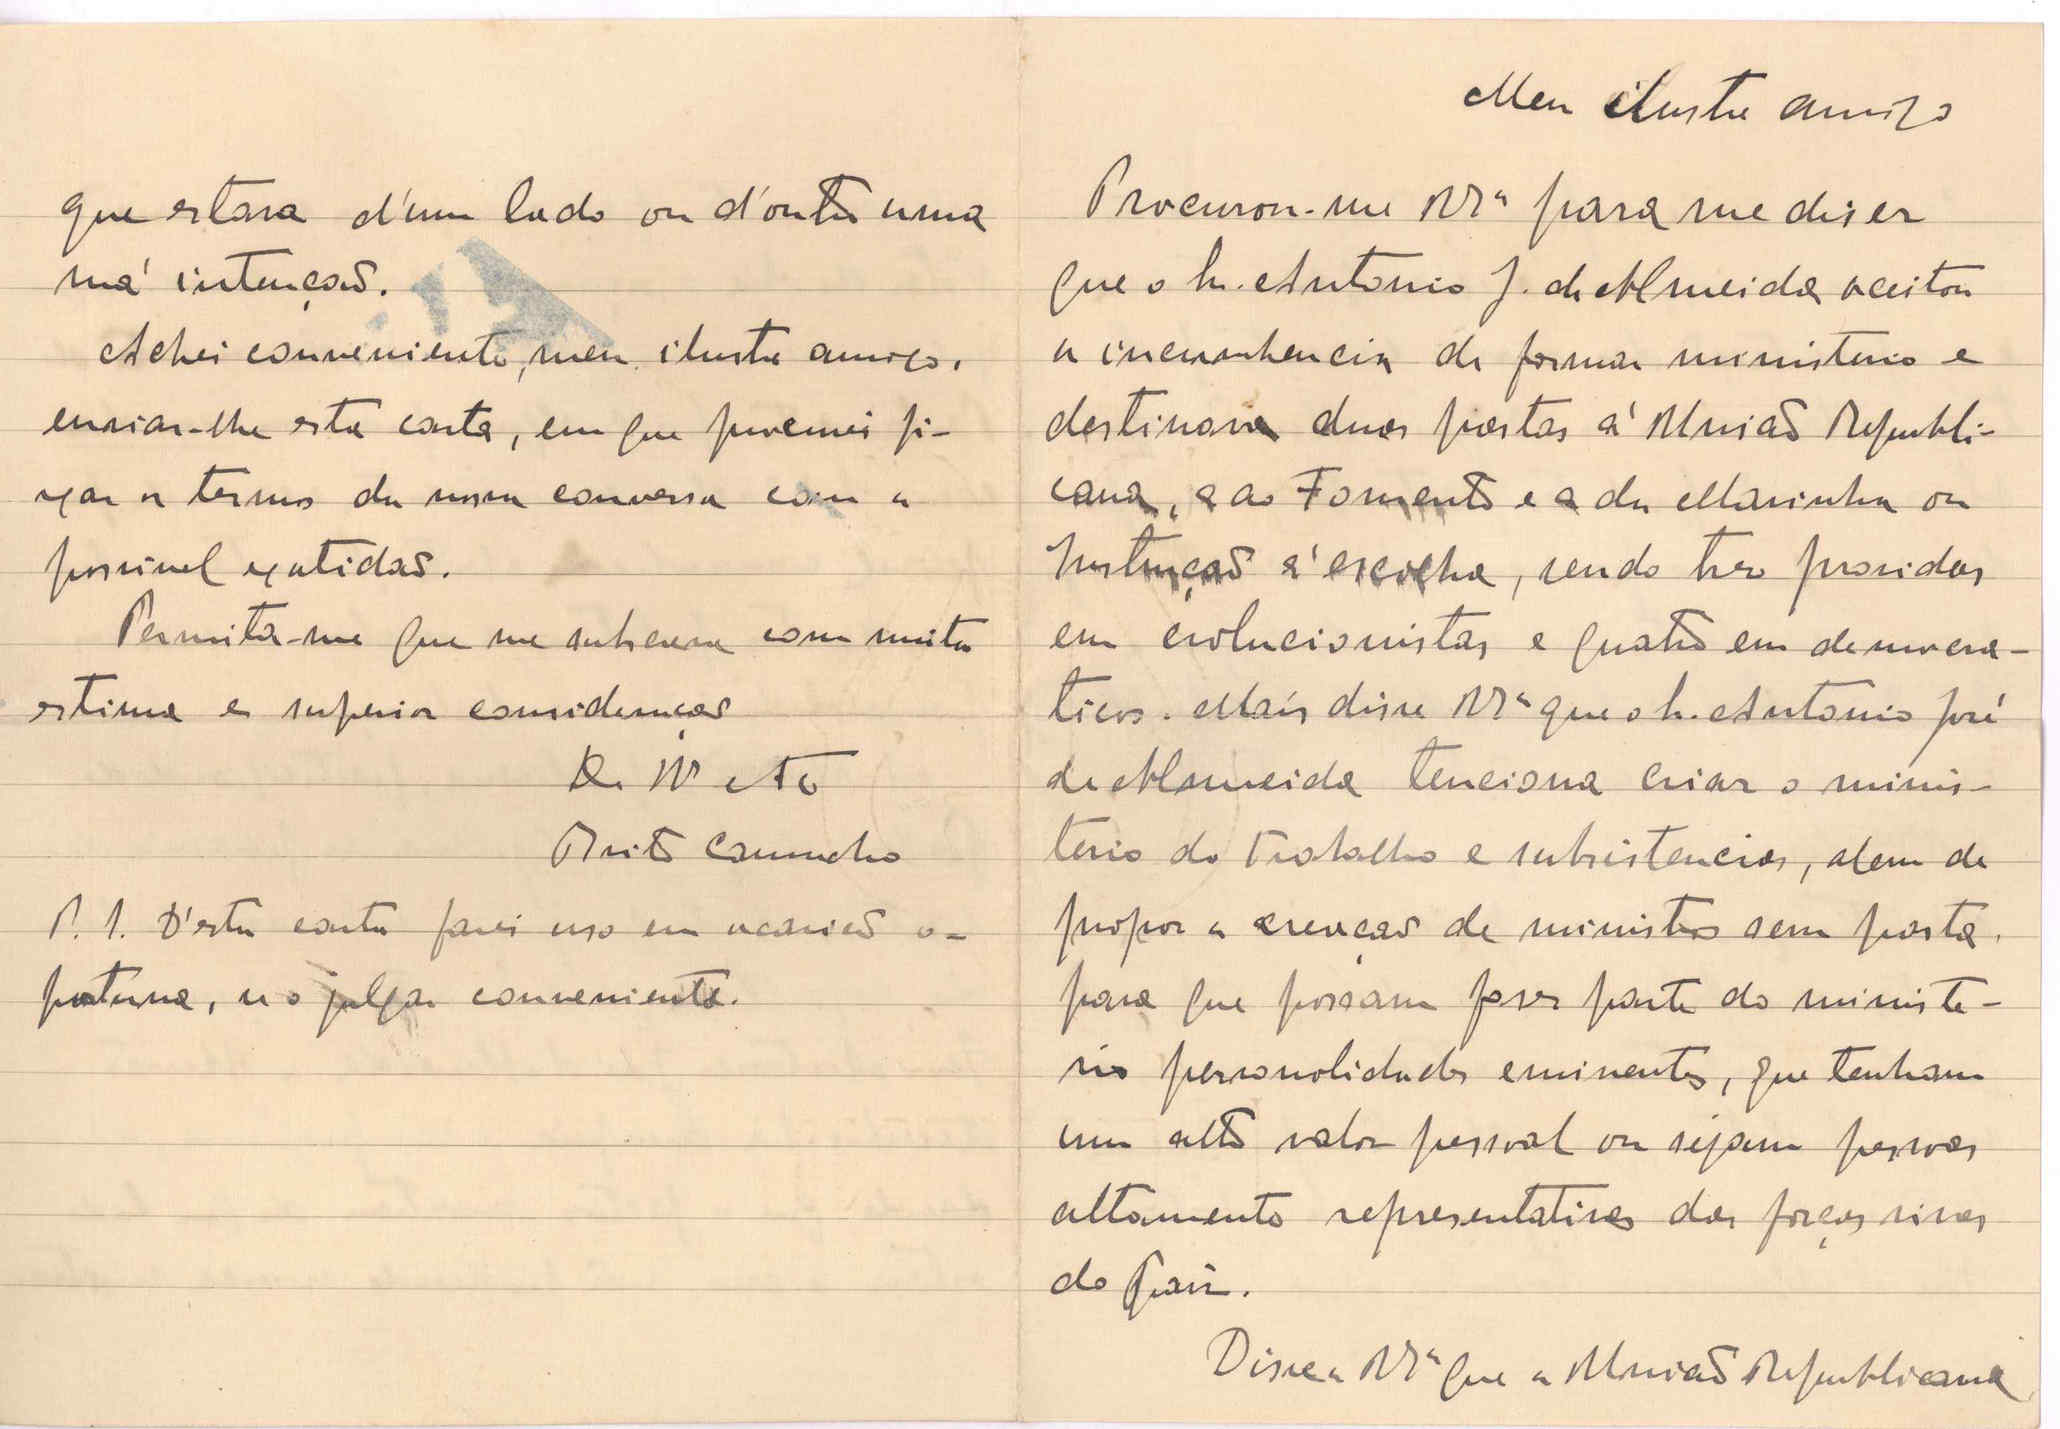 Meu ilustre amigo
Procurou-me V. Ex.ª para me diser
que o sr. Antonio J. de Almeida aceitou
a incumbencia de formar ministerio e
destinava duas pastas á União Republi-
cana, a do Fomento e a da Marinha ou
Instrução á escolha, sendo tres providas
em evolucionistas e quatro em democra-
ticos. Mais disse V. Ex.ª que o sr. Antonio José
de Almeida tenciona criar o minis-
terio do Trabalho e subsistencias, alem de
propor a creação de ministros sem pasta,
para que possam faser parte do ministe-
rio personalidades eminentes, que tenham
um alto valor pessoal ou sejam pessoas
altamente representativas das forças vivas
do Pais.
Disse a V. Ex.ª que a União Republicana
que estava d'um lado ou d'outro uma
má intenção.
Achei conveniente, meu ilustre amigo,
enviar-lhe esta carta, em que procurei fi-
xar os termos da nossa conversa com a
possivel exatidão.
Permita-me que me subscreva com muita
estima e superior consideração
De V. Ex.ª At.º
Brito Camacho
P. S. D'esta carta farei uso em ocasião o-
portuna, se o julgar conveniente.